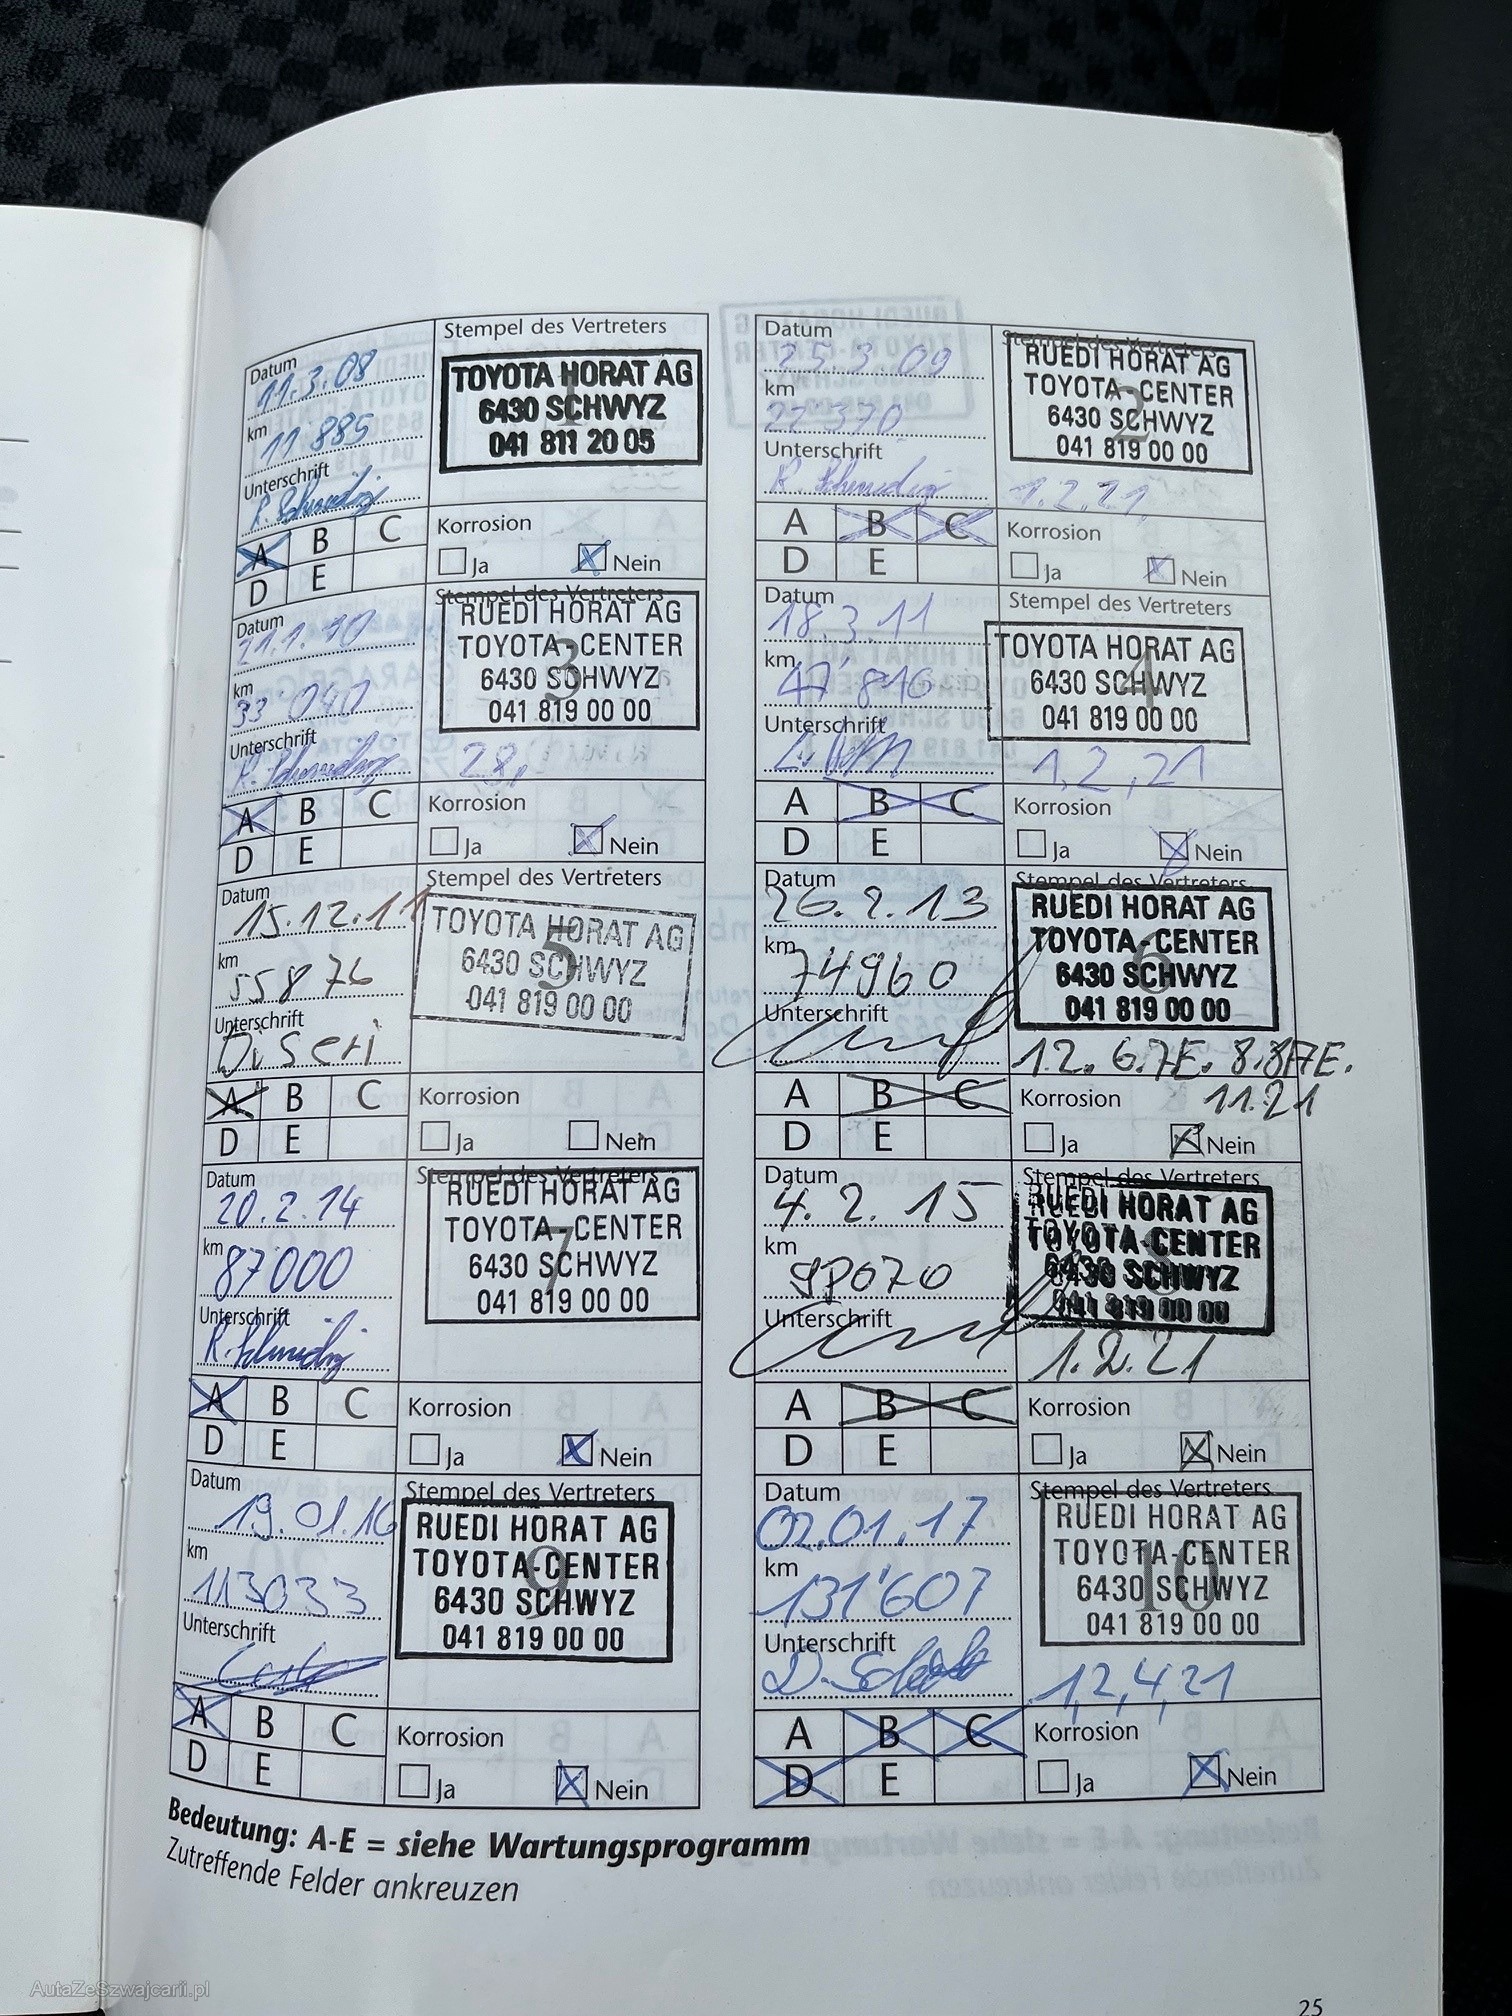 Datum
11.3.08
km
11'885
Unterschrift
R. Schmidig
Stempel des Vertreters
1
TOYOTA HORAT AG
6430 SCHWYZ
041 811 20 05
A B C
D E
Korrosion
Ja Nein
Datum
25.3.09
km
22'370
Unterschrift
R. Schmidig
Stempel des Vertreters
2
RUEDI HORAT AG
TOYOTA-CENTER
6430 SCHWYZ
041 819 00 00
1.2.21.
A B C
D E
Korrosion
Ja Nein
Datum
21.1.10
km
33'040
Unterschrift
R. Schmidig
Stempel des Vertreters
3
RUEDI HORAT AG
TOYOTA-CENTER
6430 SCHWYZ
041 819 00 00
28,
A B C
D E
Korrosion
Ja Nein
Datum
18.3.11
km
47'816
Unterschrift
Stempel des Vertreters
4
TOYOTA HORAT AG
6430 SCHWYZ
041 819 00 00
1,2,21
A B C
D E
Korrosion
Ja Nein
Datum
15.12.11
km
55876
Unterschrift
Stempel des Vertreters
5
TOYOTA HORAT AG
6430 SCHWYZ
041 819 00 00
A B C
D E
Korrosion
Ja Nein
Datum
26.2.13
km
74960
Unterschrift
Stempel des Vertreters
6
RUEDI HORAT AG
TOYOTA-CENTER
6430 SCHWYZ
041 819 00 00
1.2. 6.7E. 8.
11.21
A B C
D E
Korrosion
Ja Nein
Datum
20.2.14
km
87000
Unterschrift
R. Schmidig
Stempel des Vertreters
7
RUEDI HORAT AG
TOYOTA-CENTER
6430 SCHWYZ
041 819 00 00
A B C
D E
Korrosion
Ja Nein
Datum
4.2.15
km
Unterschrift
Stempel des Vertreters
8
RUEDI HORAT AG
TOYOTA-CENTER
6430 SCHWYZ
041 819 00 00
1.2.21
A B C
D E
Korrosion
Ja Nein
Datum
19.01.16
km
113033
Unterschrift
Stempel des Vertreters
9
RUEDI HORAT AG
TOYOTA-CENTER
6430 SCHWYZ
041 819 00 00
A B C
D E
Korrosion
Ja Nein
Datum
02.01.17
km
131'607
Unterschrift
Stempel des Vertreters
10
RUEDI HORAT AG
TOYOTA-CENTER
6430 SCHWYZ
041 819 00 00
1,2,4,21
A B C
D E
Korrosion
Ja Nein
Bedeutung: A-E = siehe Wartungsprogramm
Zutreffende Felder ankreuzen
25
AutaZeSzwajcarii.pl